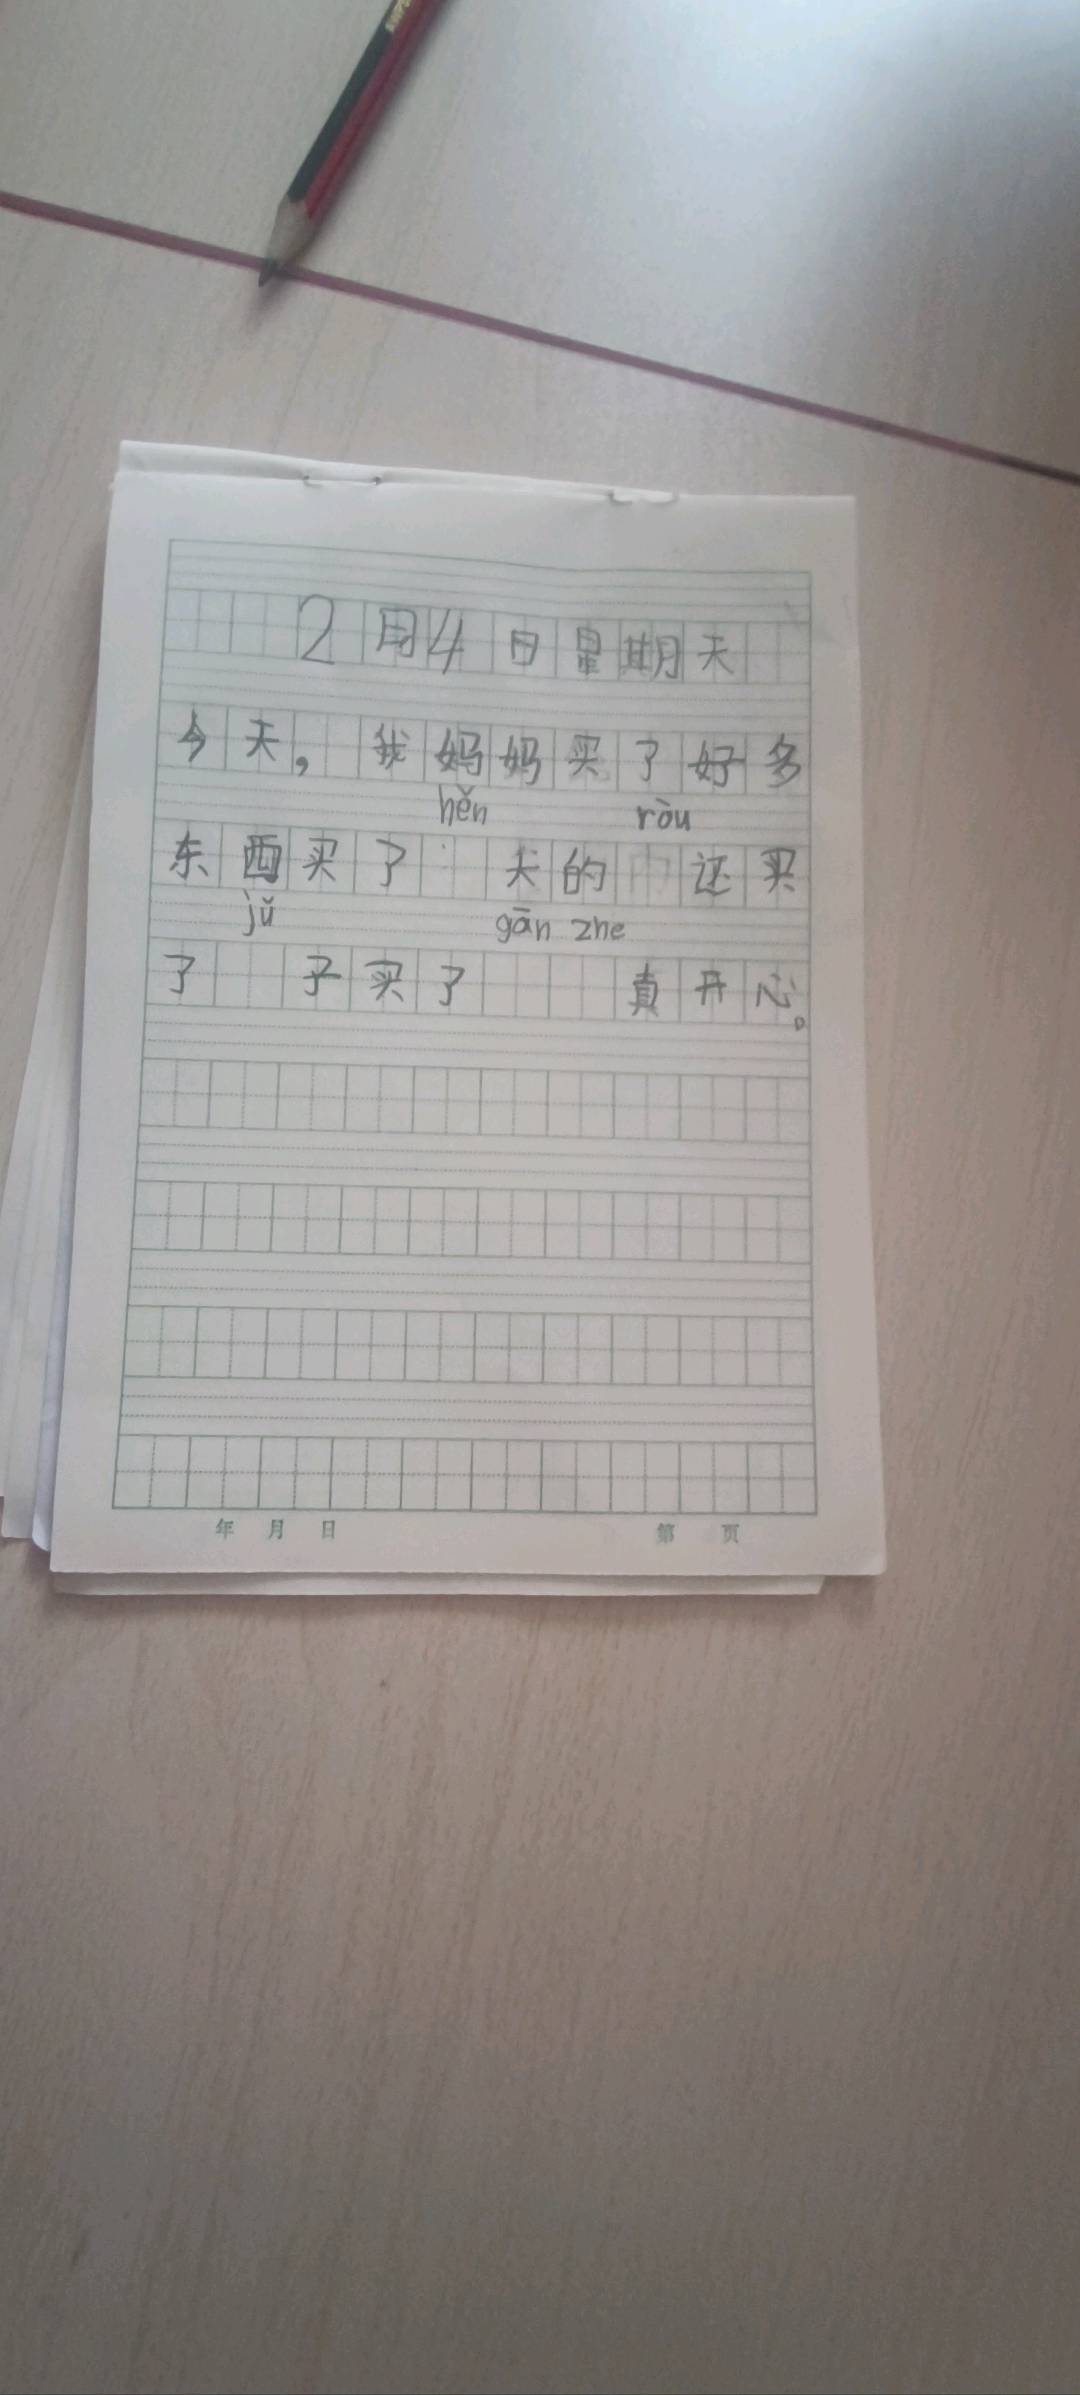 2月4日星期天
今天，我妈妈买了好多
hěn ròu
东西买了 大的 还买
jǔ gān zhe
了 子买了 真开心。
年 月 日 第 页